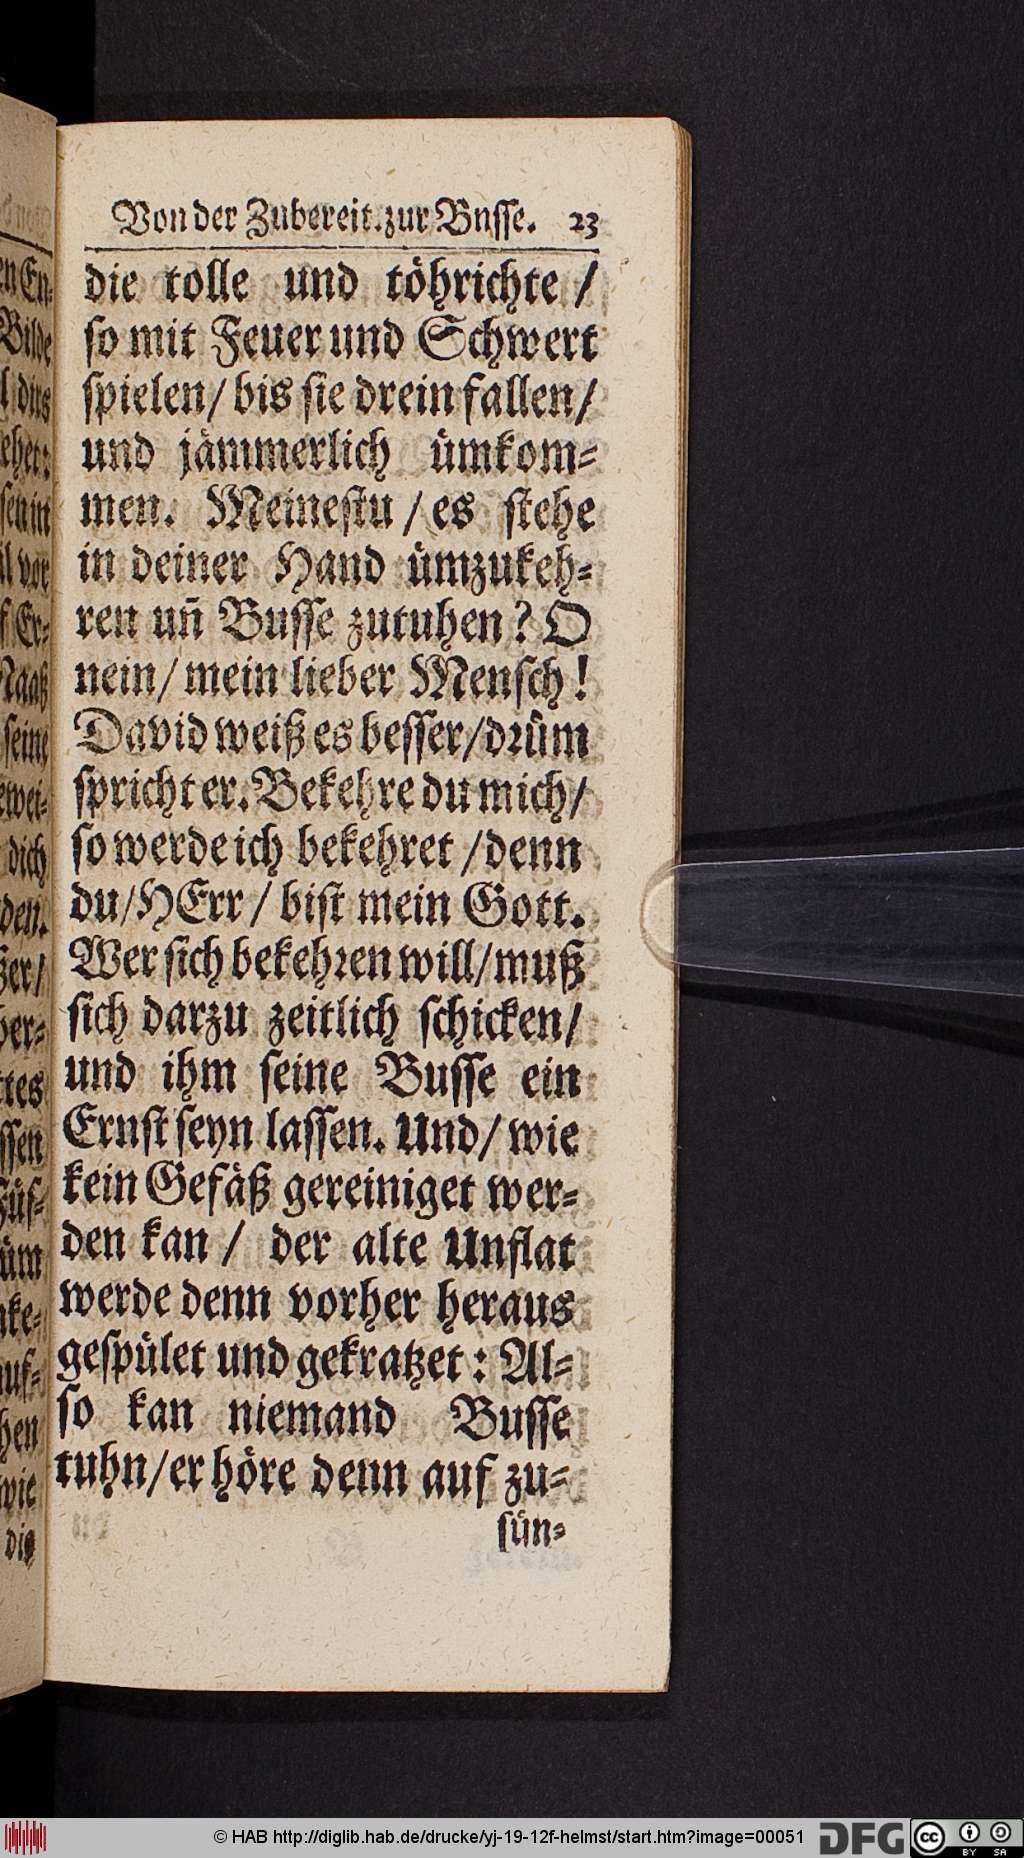 Von der Zubereit. zur Busse. 23
die tolle und töhrichte /
so mit Feuer und Schwert
spielen / bis sie drein fallen /
und jämmerlich ümkom⸗
men. Meinestu / es stehe
in deiner Hand ümzukeh⸗
ren uñ Busse zutuhen? O
nein / mein lieber Mensch!
David weiß es besser / drüm
spricht er. Bekehre du mich /
so werde ich bekehret / denn
du / HErr / bist mein Gott.
Wer sich bekehren will / muß
sich darzu zeitlich schicken /
und ihm seine Busse ein
Ernst seyn lassen. Und / wie
kein Gefäß gereiniget wer⸗
den kan / der alte Unflat
werde denn vorher heraus
gespület und gekratzet : Al⸗
so kan niemand Busse
tuhn / er höre denn auf zu⸗
sün⸗
en En⸗
Bilde
dich
den.
seine
ssen
hen
wie
die
© HAB http://diglib.hab.de/drucke/yj-19-12f-helmst/start.htm?image=00051
DFG
cc BY SA